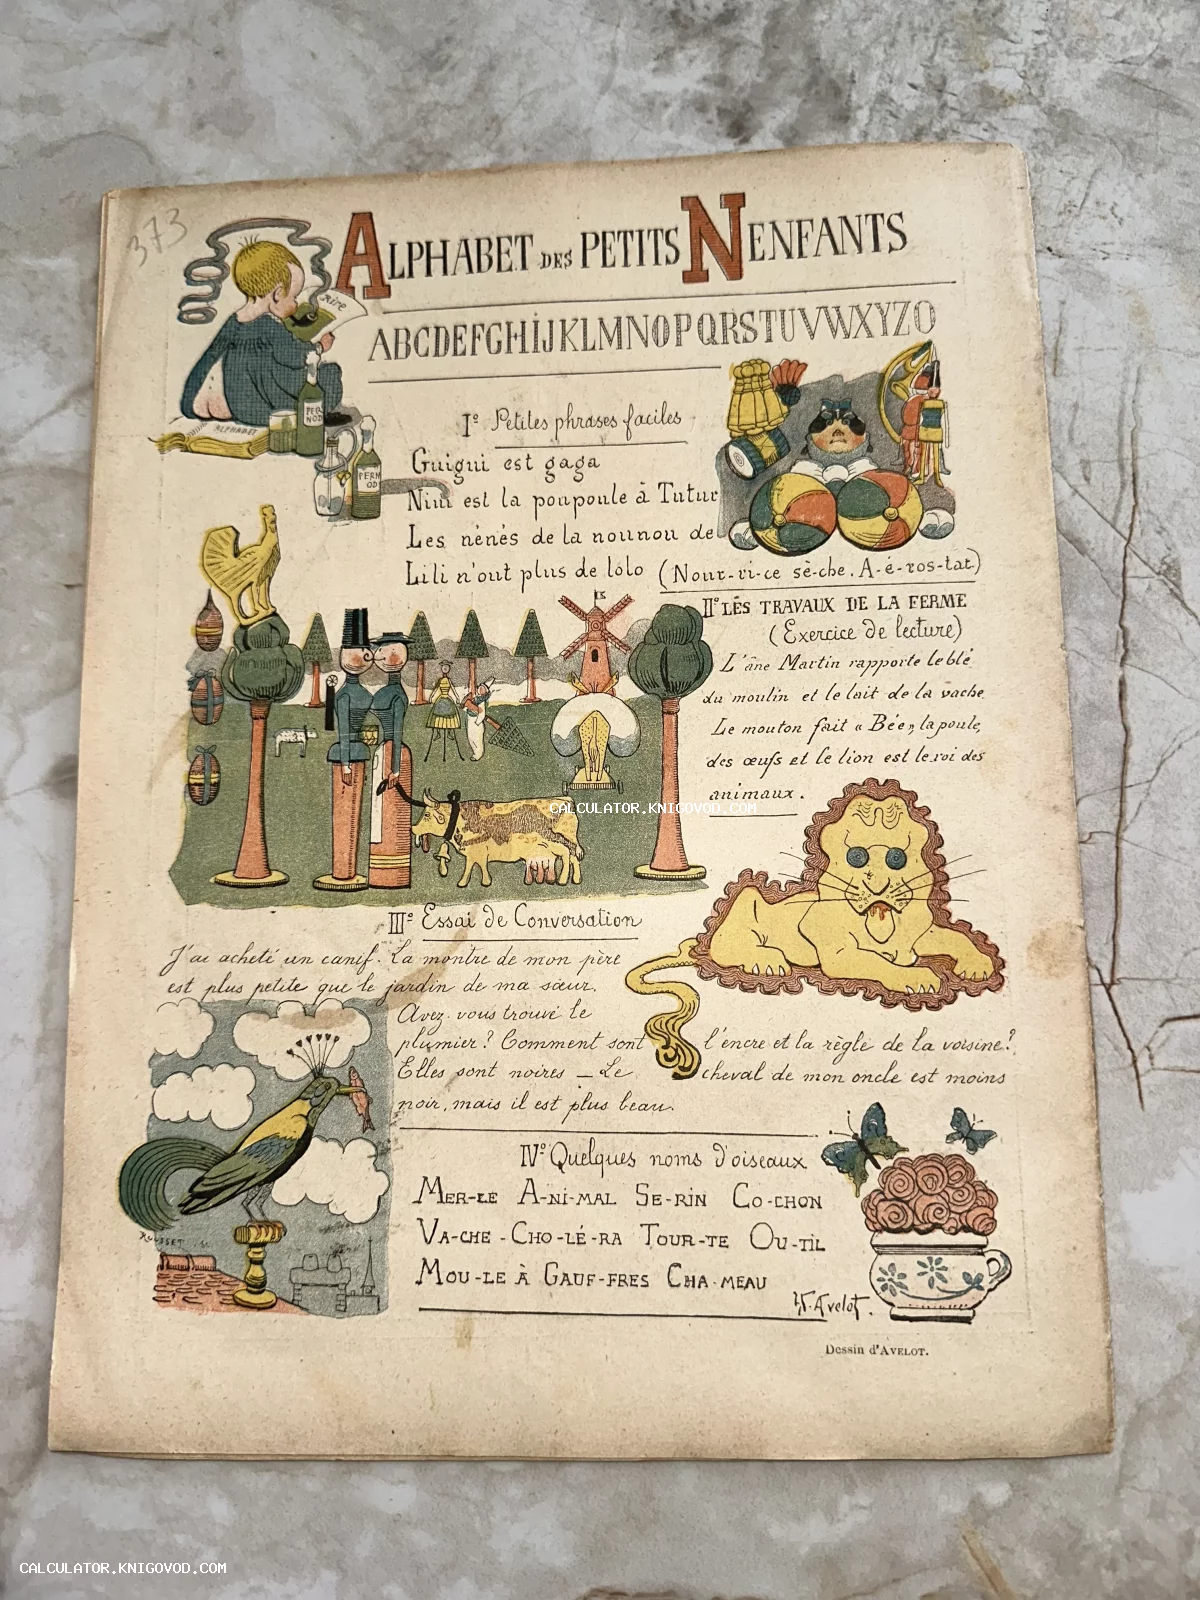 373
ALPHABET DES PETITS NENFANTS
Rire
ABCDEFGHIJKLMNOPQRSTUVWXYZO
PERNOD
ALPHABET
PERNOD
Iº Petites phrases faciles
Guigui est gaga
Nini est la poupoule à Tutur
Les nénés de la nounou de
Lili n'ont plus de lolo (Nour-ri-ce sè-che. A-é-ros-tat.)
IIº LES TRAVAUX DE LA FERME
(Exercice de lecture)
L'âne Martin rapporte le blé
du moulin et le lait de la vache.
Le mouton fait « Bée », la poule,
des œufs et le lion est le roi des
animaux.
CALCULATOR.KNIGOVOD.COM
IIIº Essai de Conversation
J'ai acheté un canif. La montre de mon père
est plus petite que le jardin de ma sœur.
Avez vous trouvé le
plumier? Comment sont l'encre et la règle de la voisine?
Elles sont noires — Le cheval de mon oncle est moins
noir, mais il est plus beau.
IVº Quelques noms d'oiseaux
MER-LE A-NI-MAL SE-RIN CO-CHON
VA-CHE - CHO-LÉ-RA TOUR-TE OU-TIL
MOU-LE À GAUF-FRES CHA-MEAU
H. Avelot.
Dessin d'AVELOT.
CALCULATOR.KNIGOVOD.COM